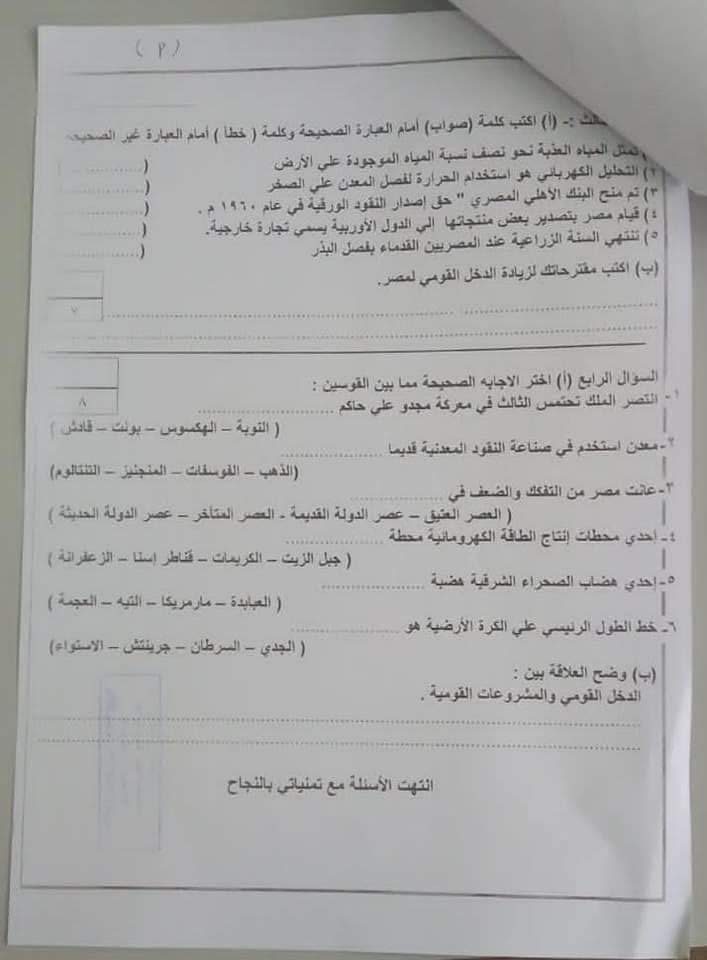 ( ٣ )
(أ) اكتب كلمة (صواب) أمام العبارة الصحيحة وكلمة ( خطأ ) أمام العبارة غير الصحيحه
تمثل المياه العذبة نحو نصف نسبة المياه الموجودة علي الأرض ( ............... )
٢) التحليل الكهربائي هو استخدام الحرارة لفصل المعدن علي الصخر ( ............... )
٣) تم منح البنك الأهلي المصري " حق إصدار النقود الورقية في عام ١٩٦٠ م . ( ............... )
٤) قيام مصر بتصدير بعض منتجاتها إلي الدول الأوربية يسمي تجارة خارجية. ( ............... )
٥) تنتهي السنة الزراعية عند المصريين القدماء بفصل البذر ( ............... )
(ب) اكتب مقترحاتك لزيادة الدخل القومي لمصر.
٧
السؤال الرابع (أ) اختر الاجابه الصحيحة مما بين القوسين :
٨
١- انتصر الملك تحتمس الثالث في معركة مجدو علي حاكم .....................
( النوبة – الهكسوس – بونت – قادش )
٢- معدن استخدم في صناعة النقود المعدنية قديما .....................
(الذهب – الفوسفات – المنجنيز – التنتالوم)
٣- عانت مصر من التفكك والضعف في .....................
( العصر العتيق – عصر الدولة القديمة - العصر المتأخر – عصر الدولة الحديثة )
٤- إحدي محطات إنتاج الطاقة الكهرومائية محطة .....................
( جبل الزيت – الكريمات – قناطر إسنا – الزعفرانة )
٥- إحدي هضاب الصحراء الشرقية هضبة .....................
( العبابدة – مارمريكا – التيه – العجمة )
٦- خط الطول الرئيسي علي الكرة الأرضية هو .....................
( الجدي – السرطان – جرينتش – الاستواء)
(ب) وضح العلاقة بين :
الدخل القومي والمشروعات القومية .
انتهت الأسئلة مع تمنياتي بالنجاح